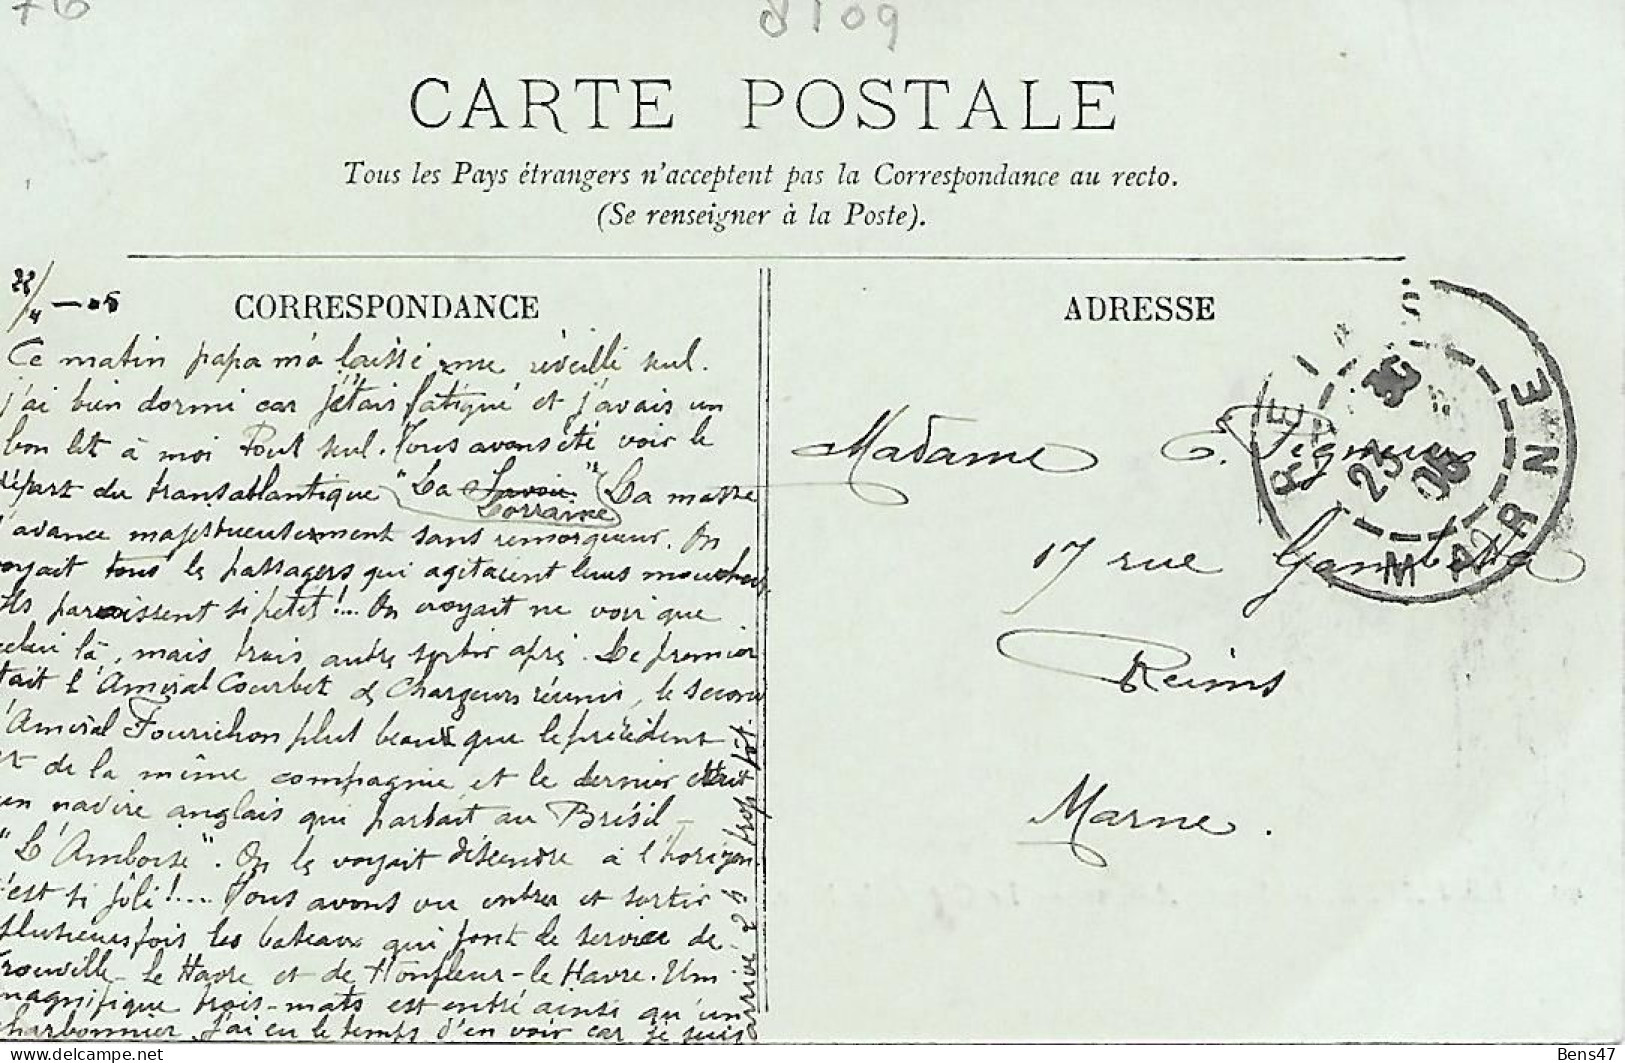 8109
CARTE POSTALE
Tous les Pays étrangers n'acceptent pas la Correspondance au recto.
(Se renseigner à la Poste).
CORRESPONDANCE
Ce matin papa m'a laissé me réveillé seul.
j'ai bien dormi car j'étais fatigué et j'avais un
bon lit à moi tout seul. Nous avons été voir le
départ du transatlantique "La Savoie" (La masse
Lorraine
s'avance majestueusement sans remorqueur. On
voyait tous les passagers qui agitaient leurs mouchoirs
ils paraissent si petit !... On croyait ne voir que
celui là, mais trois autres sortir après. Le premier
était l'Amiral Courbet des Chargeurs réunis, le second
l'Amiral Fourichon plus beau que le précédent
et de la même compagnie et le dernier était
un navire anglais qui partait au Brésil -
"L'Amboise". On les voyait descendre à l'horizon
c'est si joli !.... Nous avons vu entrer et sortir
plusieurs fois les bateaux qui font le service de
Trouville - le Havre et de Honfleur - le Havre. Un
magnifique trois-mats est entré ainsi qu'un
charbonnier. J'ai eu le temps d'en voir car je suis
arrivé 2 h trop tôt.
ADRESSE
Madame E.
17 rue Gambetta
Reims
Marne.
REIMS
23
05
MARNE
Bens47